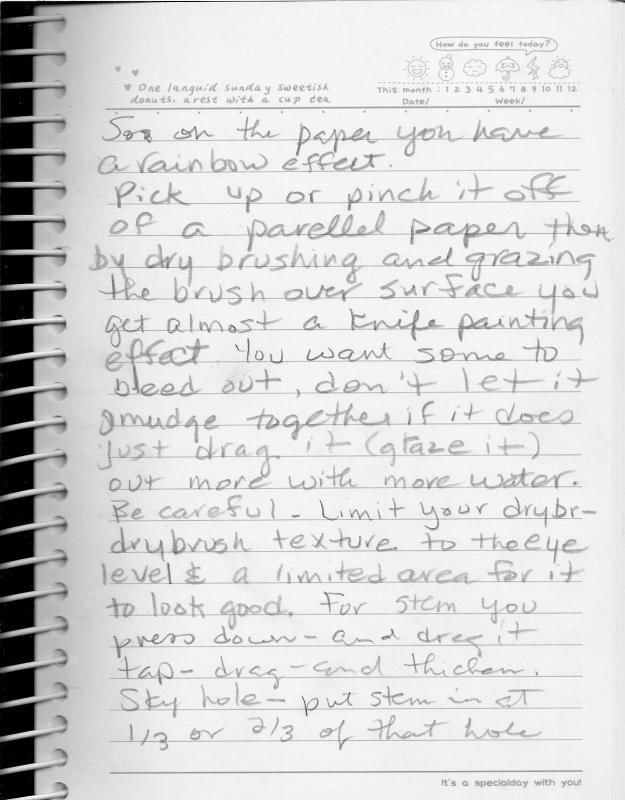 How do you feel today?
One languid sunday sweetish
donuts. arest with a cup tea
This month : 1 2 3 4 5 6 7 8 9 10 11 12
Date/ Week/
on the paper you have
a rainbow effect.
Pick up or pinch it off
of a parellel paper then
by dry brushing and grazing
the brush over surface you
get almost a knife painting
effect You want some to
bleed out, don't let it
smudge together if it does
just drag it (glaze it)
out more with more water.
Be careful - Limit your drybr-
drybrush texture to the eye
level & a limited area for it
to look good. For stem you
press down - and drag it
tap - drag - and thicken.
Sky hole - put stem in at
1/3 or 2/3 of that hole
It's a specialday with you!